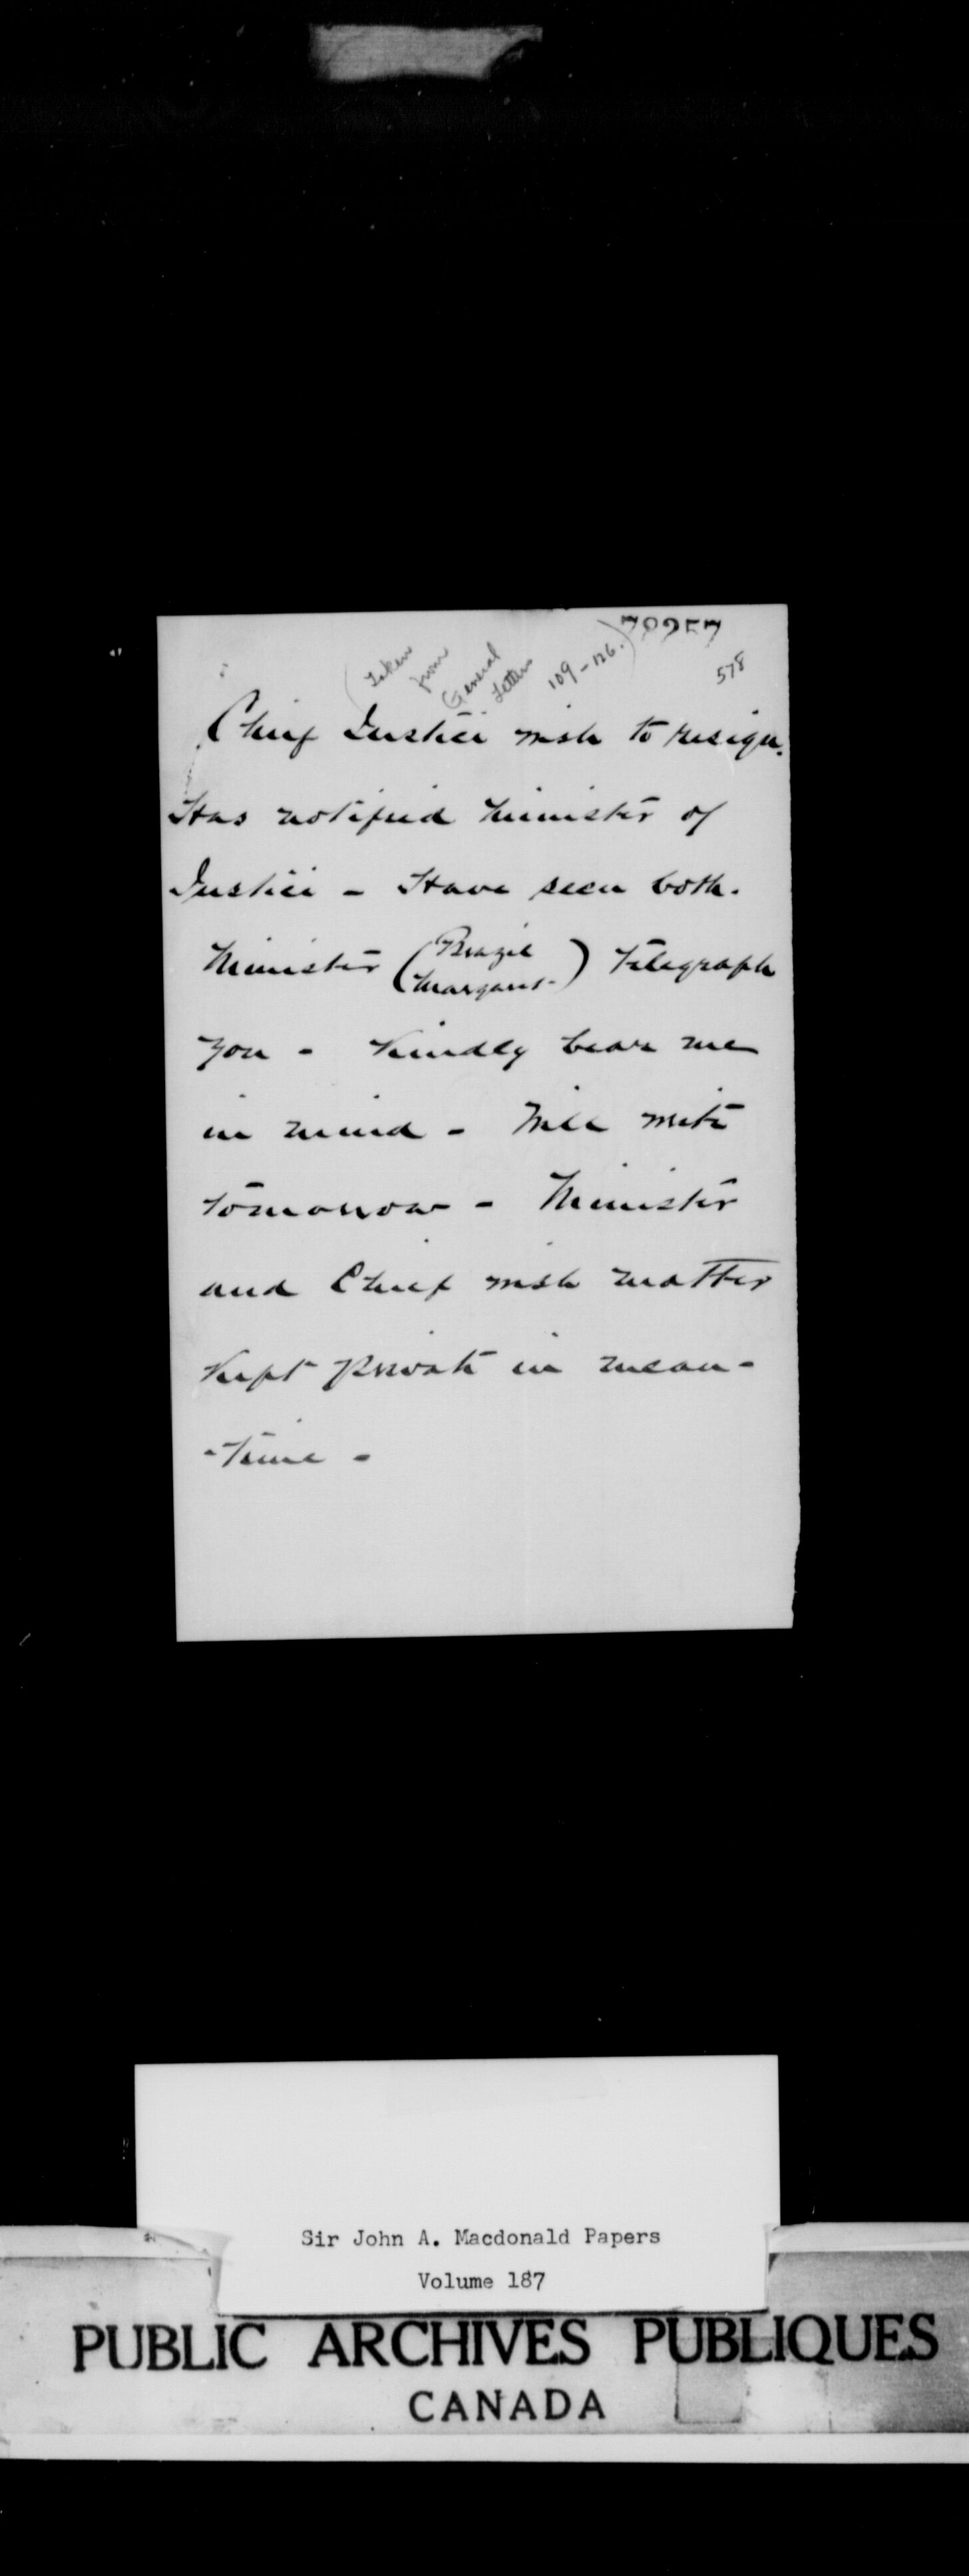 78257
578
(Taken from General Letters 109-126.)
Chief Justice wish to resign.
Has notified Minister of
Justice - Have seen both.
Minister (Brazil
Margaret-) Telegraph
you - Kindly bear me
in mind - Will write
tomorrow - Minister
and Chief wish matter
kept private in mean-
-time -
Sir John A. Macdonald Papers
Volume 187
PUBLIC ARCHIVES PUBLIQUES
CANADA